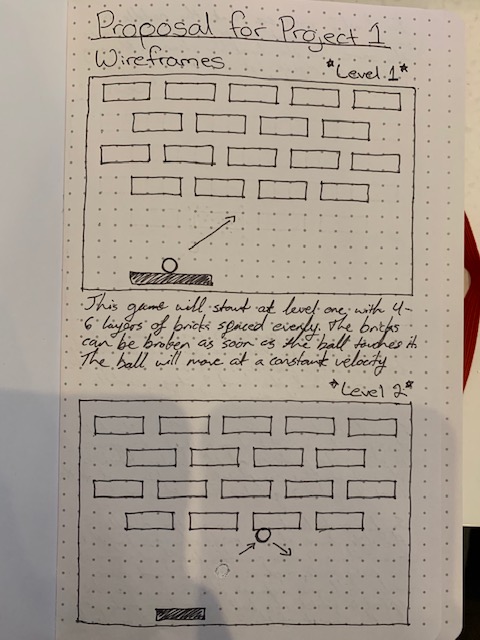 Proposal for Project 1
Wireframes
*Level 1*
This game will start at level one with 4-
6 layers of bricks spaced evenly. The bricks
can be broken as soon as the ball touches it.
The ball will move at a constant velocity
*Level 2*